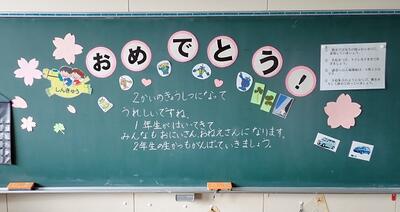 おめでとう!
しんきゅう
2かいのきょうしつになって
うれしいですね。
1年生がはいてきて
みんなもおにいさん、おねえさんになります。
2年生の生かつもがんばっていきましょう。